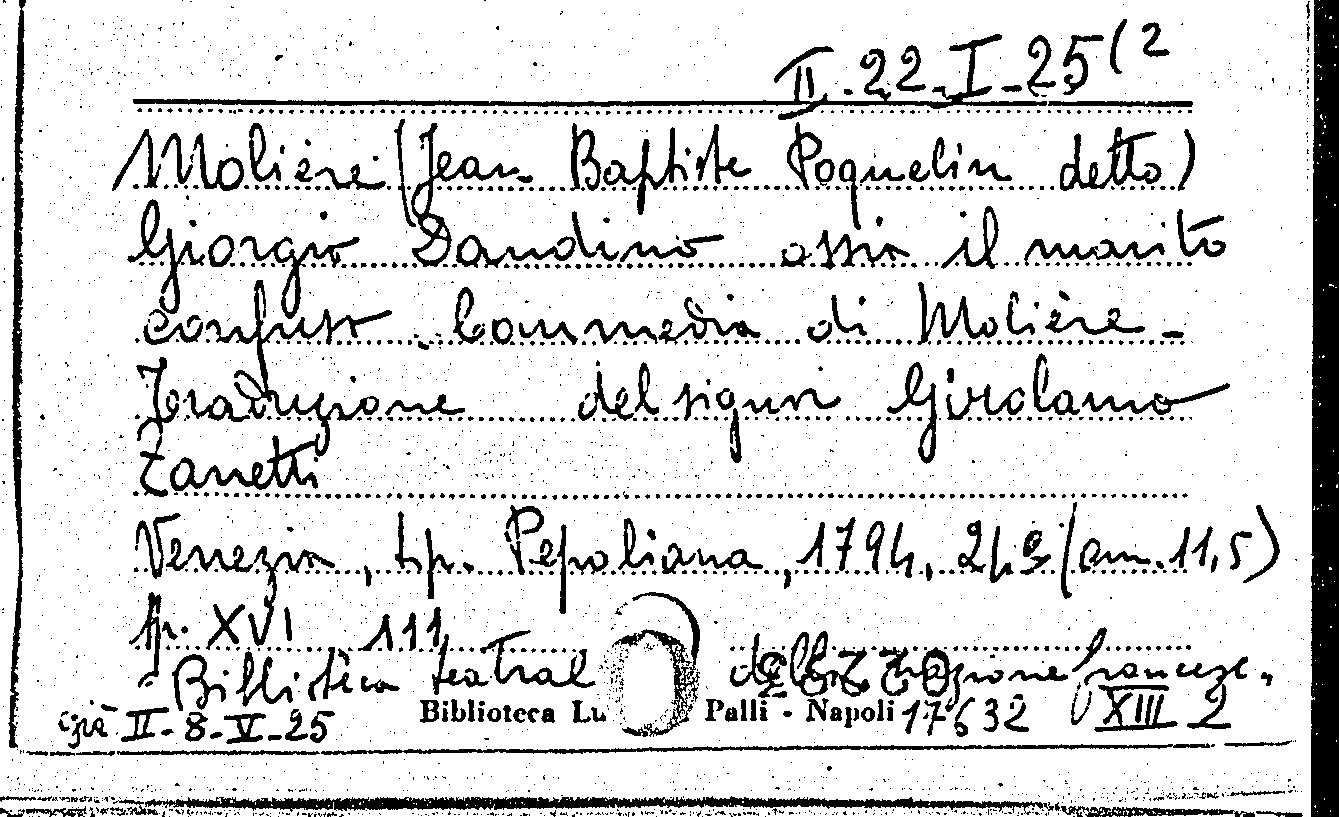 II.22.I.25(2
Molière (Jean Baptiste Poquelin detto)
Giorgio Dandino ossia il marito
confuso. Commedia di Molière -
Traduzione del signor Girolamo
Zanetti
Venezia, tip. Pepoliana, 1794, (cm. 11,5)
pp. XVI 111
Biblioteca teatral della nazione francese.
già II-8-V-25 Biblioteca Lu Palli - Napoli 17632 XIII 2